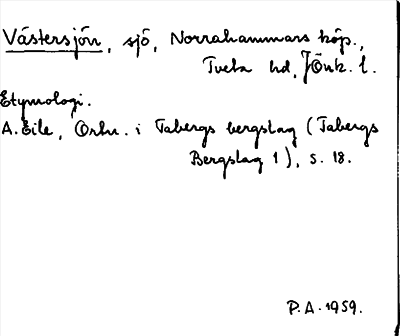 Västersjön, sjö, Norrahammars köp.,
Tveta hd, Jönk. l.
Etymologi.
A. Eile, Ortn. i Tabergs bergslag (Tabergs
Bergslag 1), s. 18.
P.A. 1959.